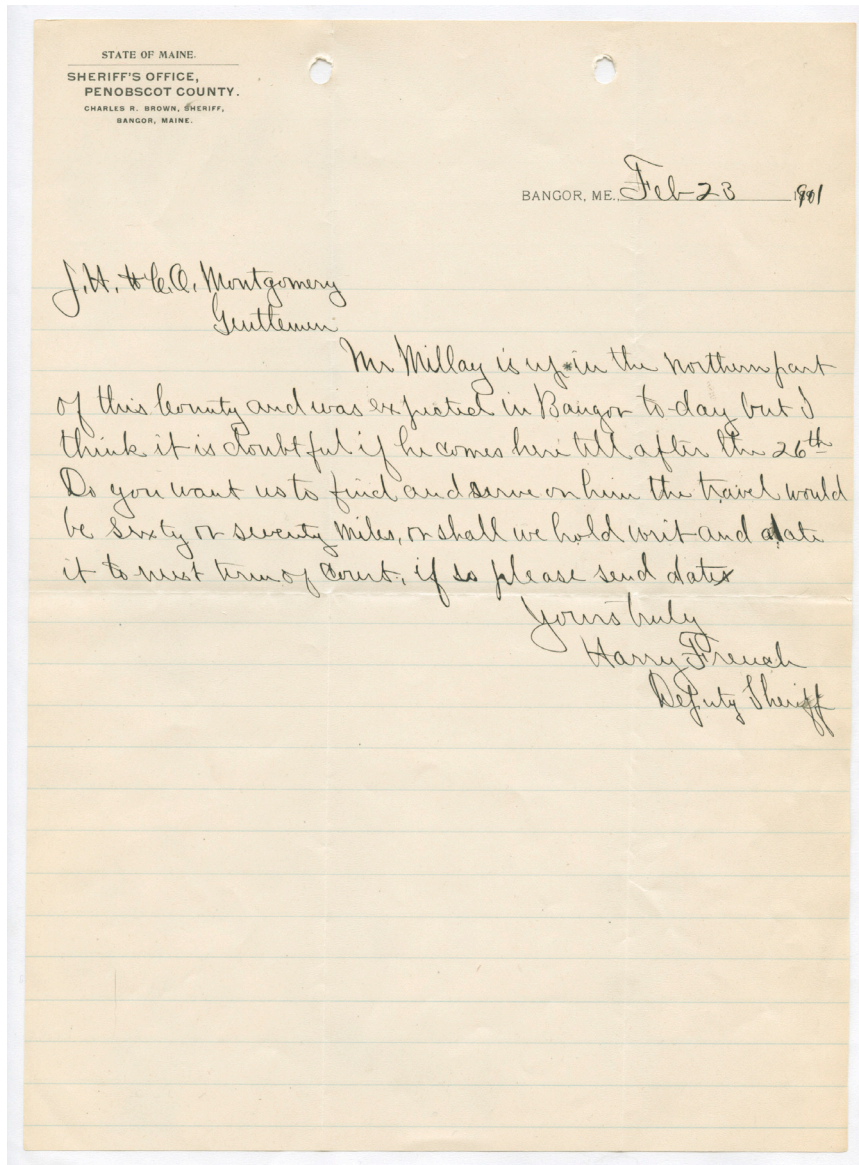 STATE OF MAINE.
SHERIFF'S OFFICE,
PENOBSCOT COUNTY.
CHARLES R. BROWN, SHERIFF,
BANGOR, MAINE.
BANGOR, ME., Feb 23 1901
J. H. & C. O. Montgomery
Gentlemen
Mr Millay is up in the northern part
of this County and was expected in Bangor to-day but I
think it is doubtful if he comes here till after the 26th
Do you want us to find and serve on him the travel would
be sixty or seventy miles, or shall we hold writ and date
it to next term of Court, if so please send date
Yours truly
Harry French
Deputy Sheriff